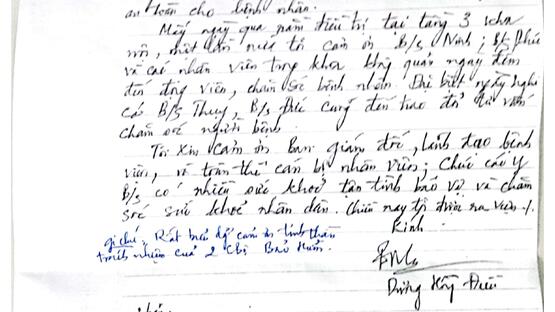 an toàn cho bệnh nhân.
Mấy ngày qua nằm điều trị tại tầng 3 khoa
nội, một lần nữa tôi cảm ơn B/s Ninh; Bs Phúc
và các nhân viên trong khoa không quản ngày đêm
đến động viên, chăm sóc bệnh nhân. Đặc biệt ngày nghỉ
có B/s Thuỷ, B/s Phúc cũng đến trao đổi tư vấn
chăm sóc người bệnh.
Tôi xin cảm ơn Ban giám đốc, lãnh đạo bệnh
viện, và toàn thể cán bộ nhân viên; Chúc các y
B/s có nhiều sức khoẻ tận tình bảo vệ và chăm
sóc sức khoẻ nhân dân. Chiều nay tôi ra viện
Kính
ghi chú: Rất cảm ơn tinh thần
trách nhiệm của 2 chị Bảo hiểm.
Dương